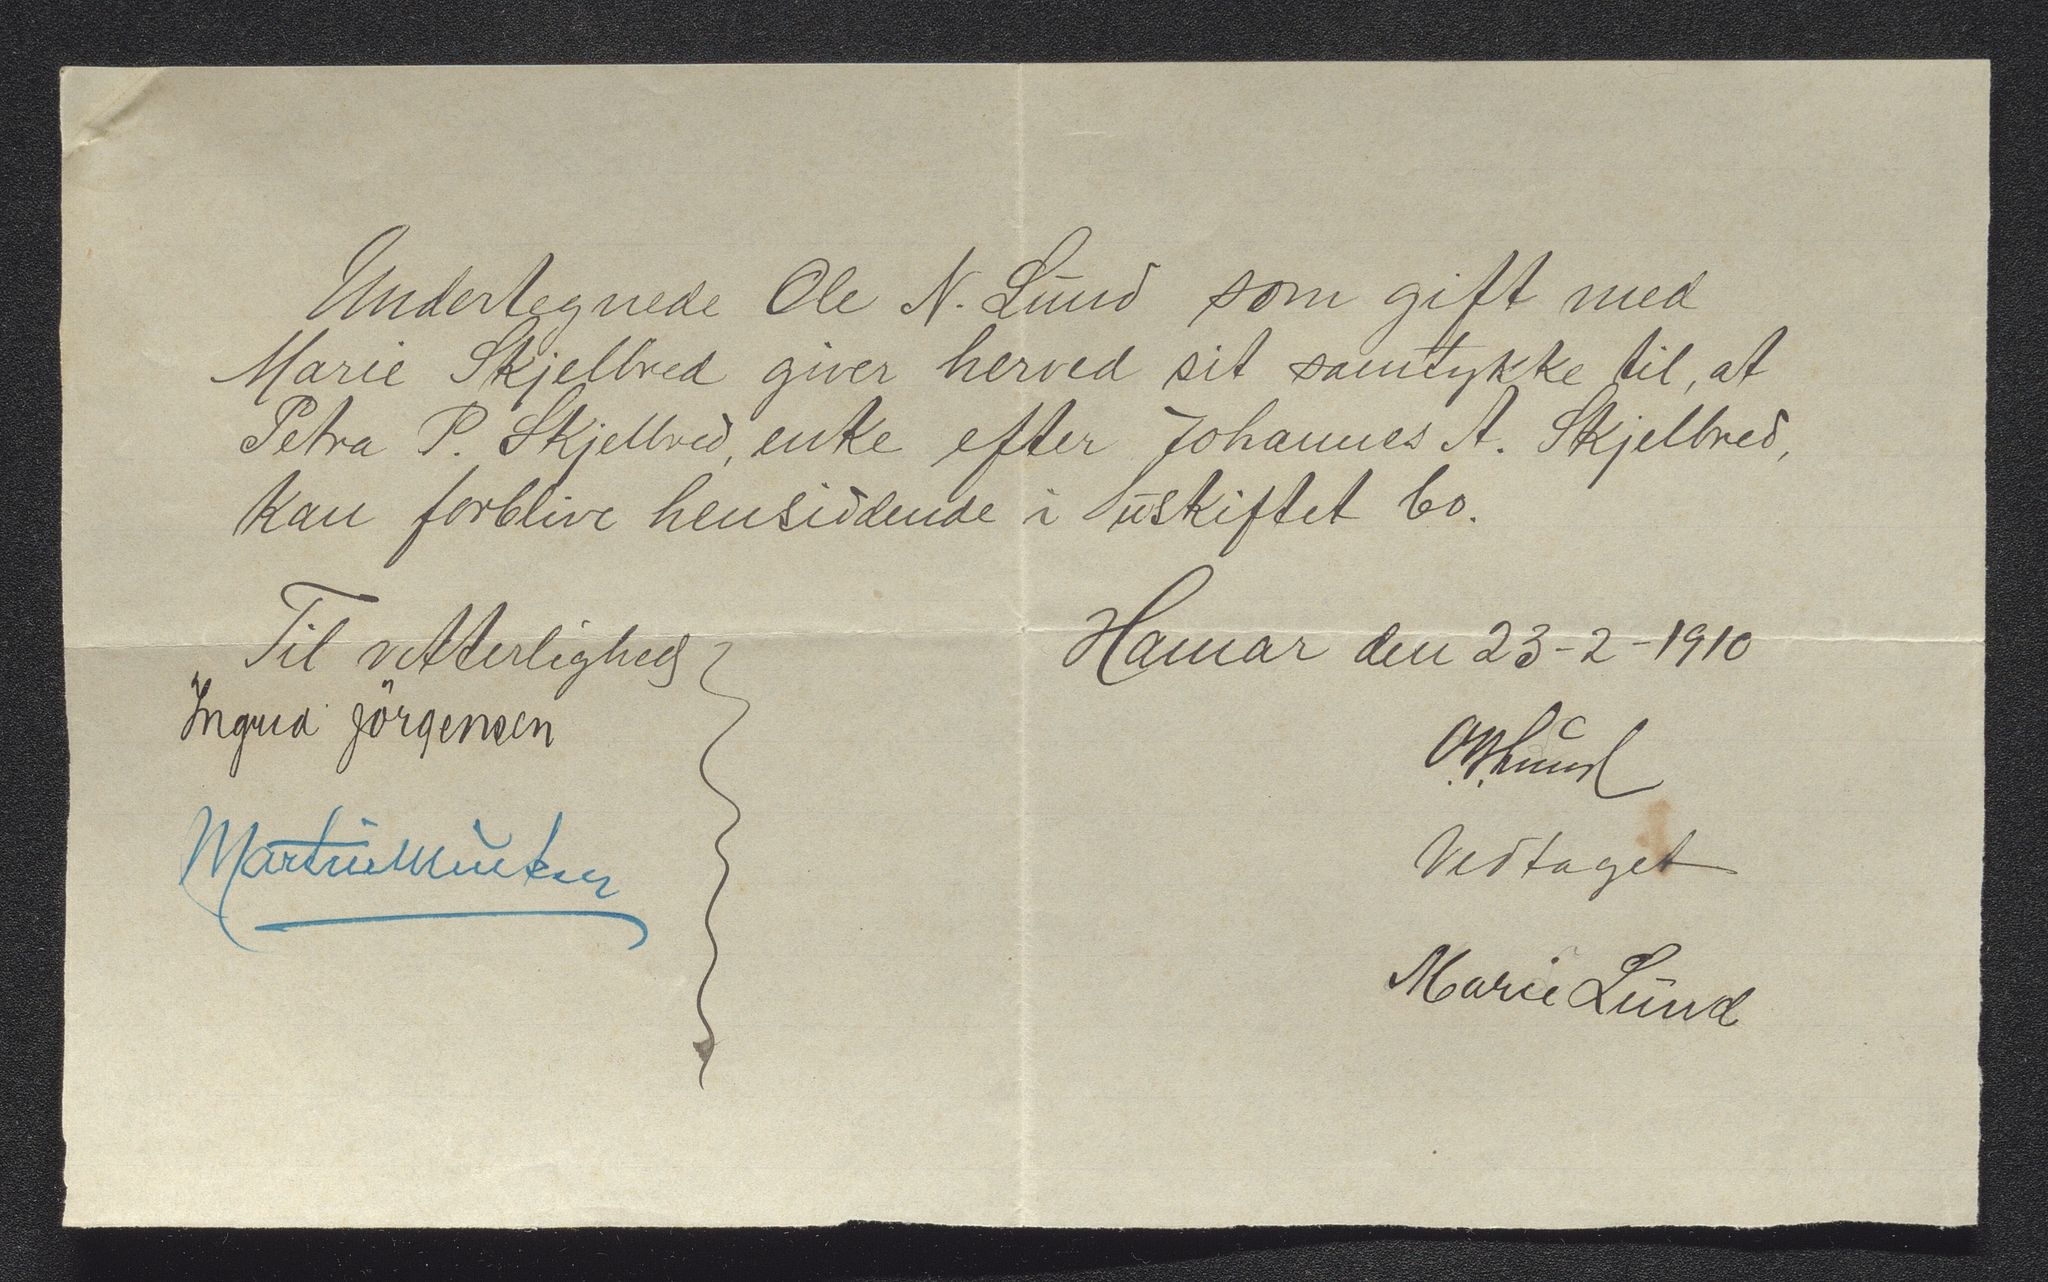 Undertegnede Ole N. Lund som gift med
Marie Skjelbred giver herved sit samtykke til, at
Petra P. Skjelbred, enke efter Johannes A. Skjelbred,
kan forblive hensiddende i uskiftet bo.
Til vitterlighed
Ingrid Jörgensen
Martin
Hamar den 23-2-1910
O.N. Lund
Vedtaget
Marie Lund